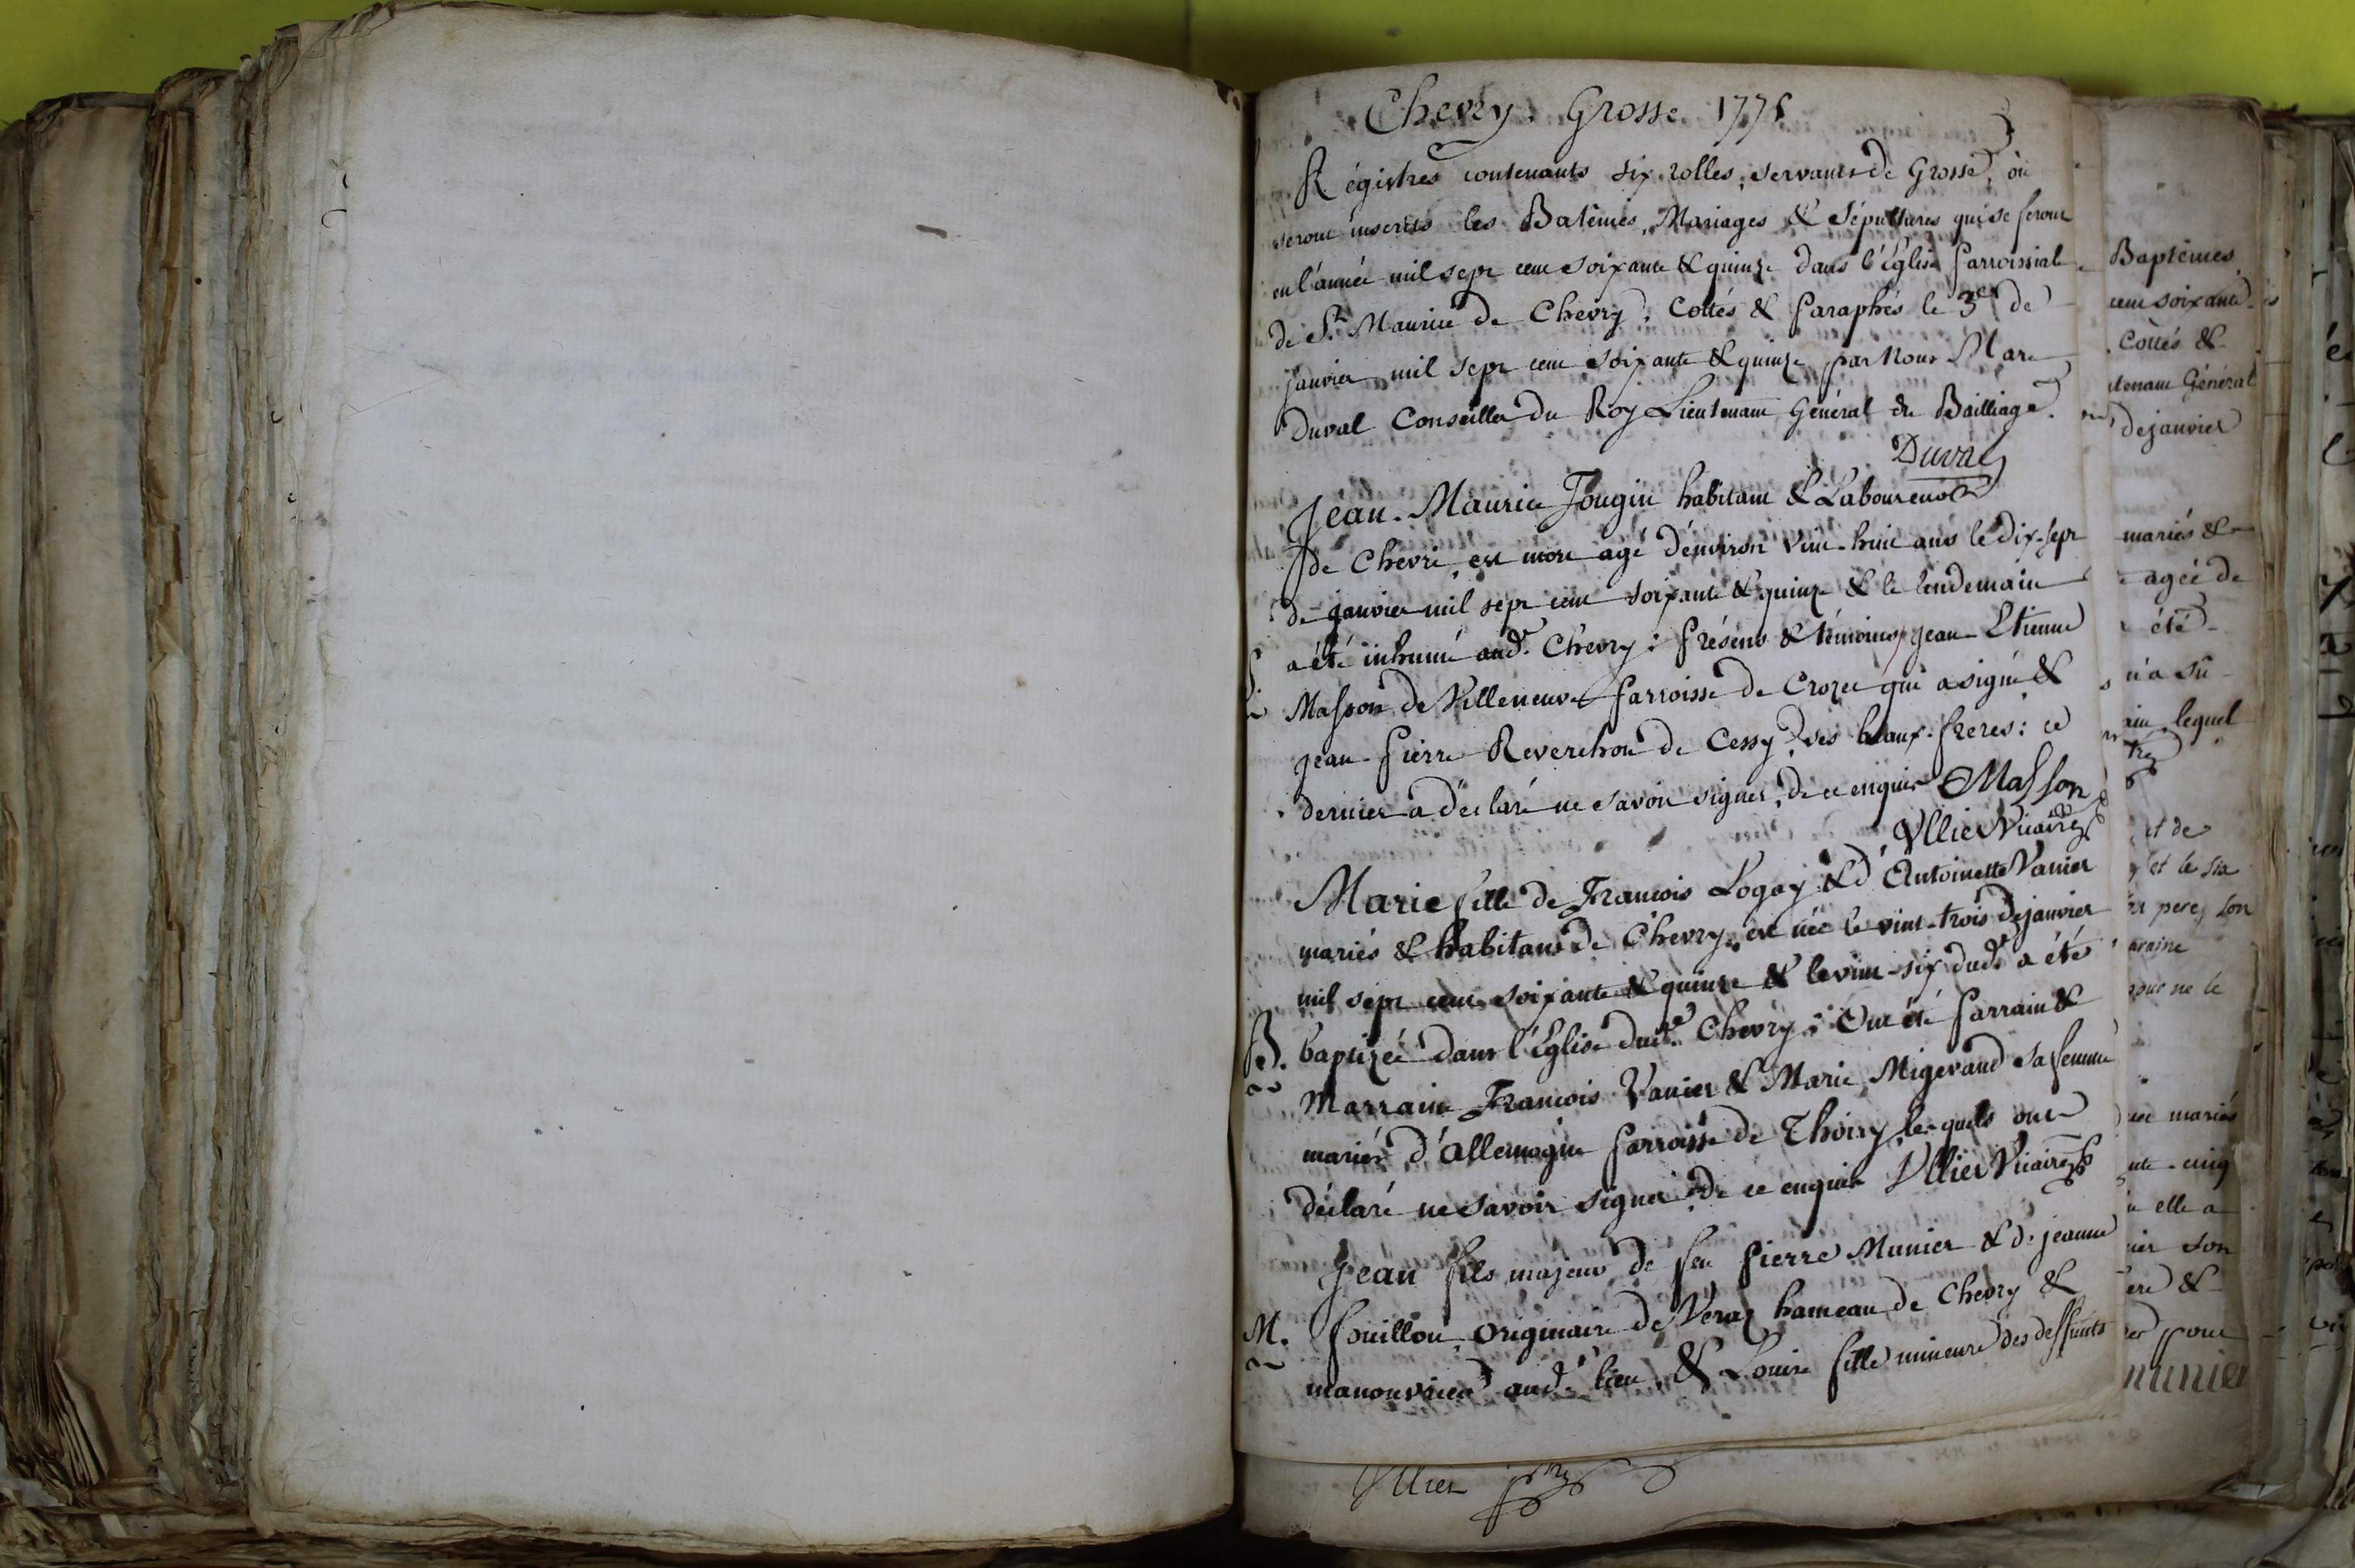 Chevry. Grosse. 1775
Régistres contenants six rolles, servants de Grosse, où
seront inscrits les Batêmes, Mariages & Sépultures qui se feront
en l'année mil sept cent soixante & quinze dans l'Église Parroissiale
de St. Maurice de Chevry. Cottés & Paraphés le 3e de
janvier mil sept cent soixante & quinze par Nous Marc
Duval Conseiller du Roy Lieutenant Général du Bailliage.
Duval
Jean-Maurice Fougin habitant & Laboureur
de Chevri, est mort agé d'environ vint-huit ans le dix-sept
de janvier mil sept cent soixante & quinze & le lendemain
S. a été inhumé aud. Chevry: Présents & témoins, jean-Etienne
Masson de Villeneuve Parroisse de Crozet qui a signé &
jean-Pierre Reverchon de Cessy, ses beaux-freres: ce
dernier a déclaré ne savoir signer, de ce enquis Masson
Ullier Vicaire
Marie fille de François Logoz & d'Antoinette Vanier
mariés & habitans de Chevry, est née le vint-trois de janvier
mil sept cent soixante & quinze & le vint-six dud. a été
B. baptizée dans l'Eglise dud. Chevry: Ont été Parrain &
Marraine François Vanier & Marie Migerand sa femme
mariés d'Allemogne Parroisse de Thoiry, lesquels ont
déclaré ne savoir signer, de ce enquis Ullier Vicaire
Jean fils majeur de feu Pierre Munier & de jeanne
M. Pouillou, originaire de Veraz hameau de Chevry &
manouvrier aud. lieu, & Louise fille mineure des deffunts
Baptêmes
cent soixante
Cottés &
tenant Général
de janvier
mariés &
agée de
été
n'a sû
lequel
et de
et le six
pere, son
araine
ne le
mariés
cinq
elle a
son
&
pour
munier
Ullier